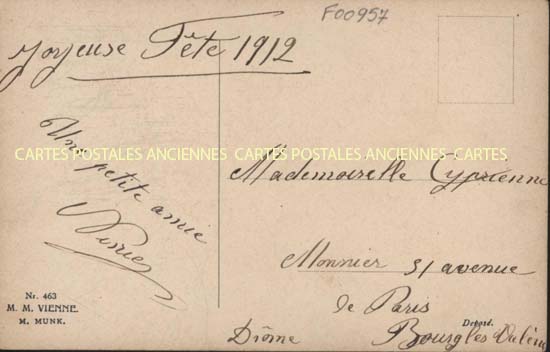 F00957
Joyeuse Fête 1912
Une petite amie
Ninie
CARTES POSTALES ANCIENNES CARTES POSTALES ANCIENNES CARTES
Mademoiselle Cyprienne
Monnier 31 avenue
de Paris
Bourg les Valence
Drôme
Nr. 463
M. M. VIENNE.
M. MUNK.
Déposé.